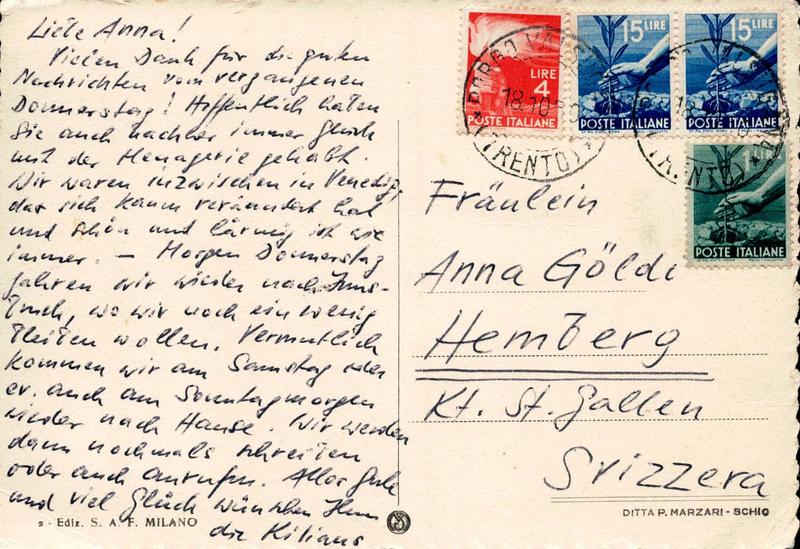 Liebe Anna!
Vielen Dank für die guten
Nachrichten vom vergangenen
Donnerstag! Hoffentlich haben
Sie auch nachher immer Glück
mit der Menagerie gehabt.
Wir waren inzwischen in Venedig,
das sich kaum verändert hat
und schön und lärmig ist wie
immer. – Morgen Donnerstag
fahren wir wieder nach Inns-
bruck, wo wir noch ein wenig
bleiben wollen. Vermutlich
kommen wir am Samstag oder
ev. auch am Sonntagmorgen
wieder nach Hause. Wir werden
dann nochmals schreiben
oder auch anrufen. Alles Gute
und viel Glück wünschen Ihnen
die Kilians
2 - Ediz. S. A. F. MILANO
LIRE
4
POSTE ITALIANE
15 LIRE
POSTE ITALIANE
15 LIRE
POSTE ITALIANE
POSTE ITALIANE
BORGO VALSUGANA
18.10
(TRENTO)
Fräulein
Anna Göldi
Hemberg
Kt. St. Gallen
Svizzera
DITTA P. MARZARI - SCHIO